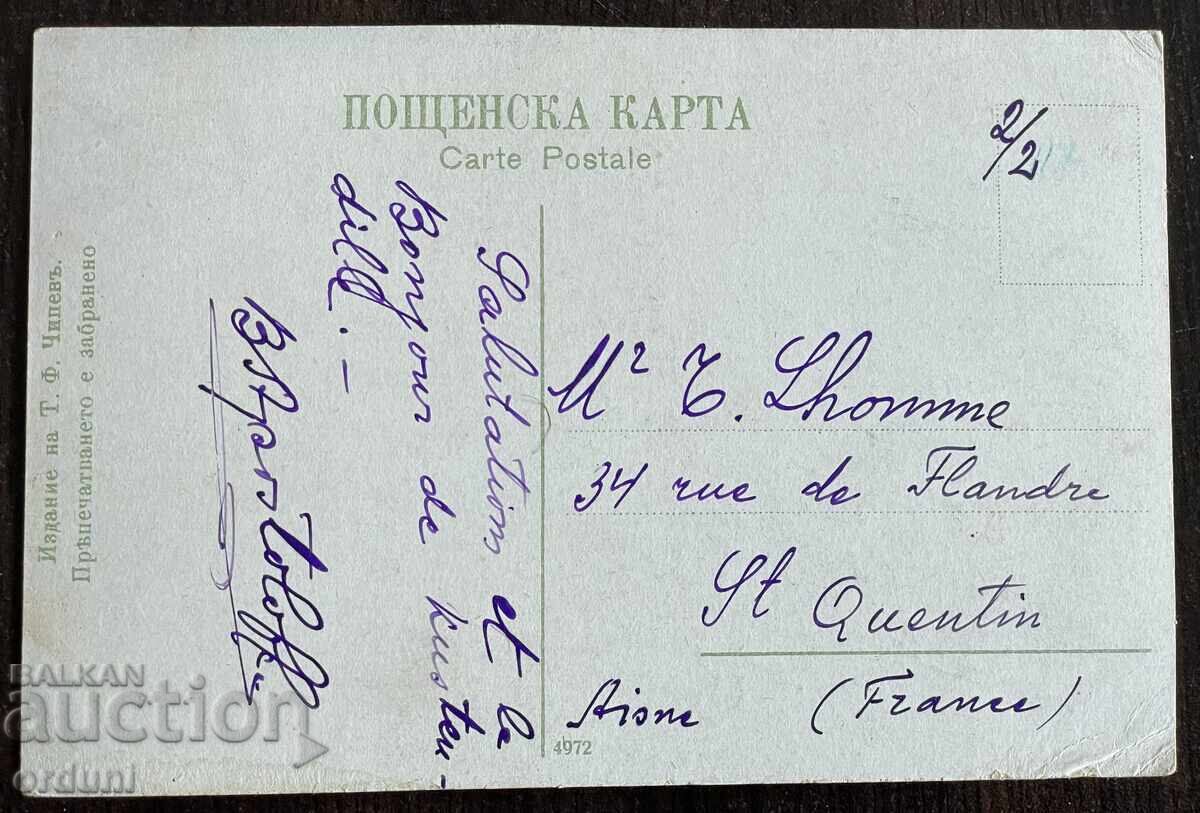 ПОЩЕНСКА КАРТА
Carte Postale
2/2
Издание на Т. Ф. Чипевъ.
Прѣпечатването е забранено
Salutation et la
Bonjour de kusten-
dill. —
Mr T. Lhomme
34 rue de Flandre
St Quentin
Aisne (France)
4972
BALKAN
auction
orduni